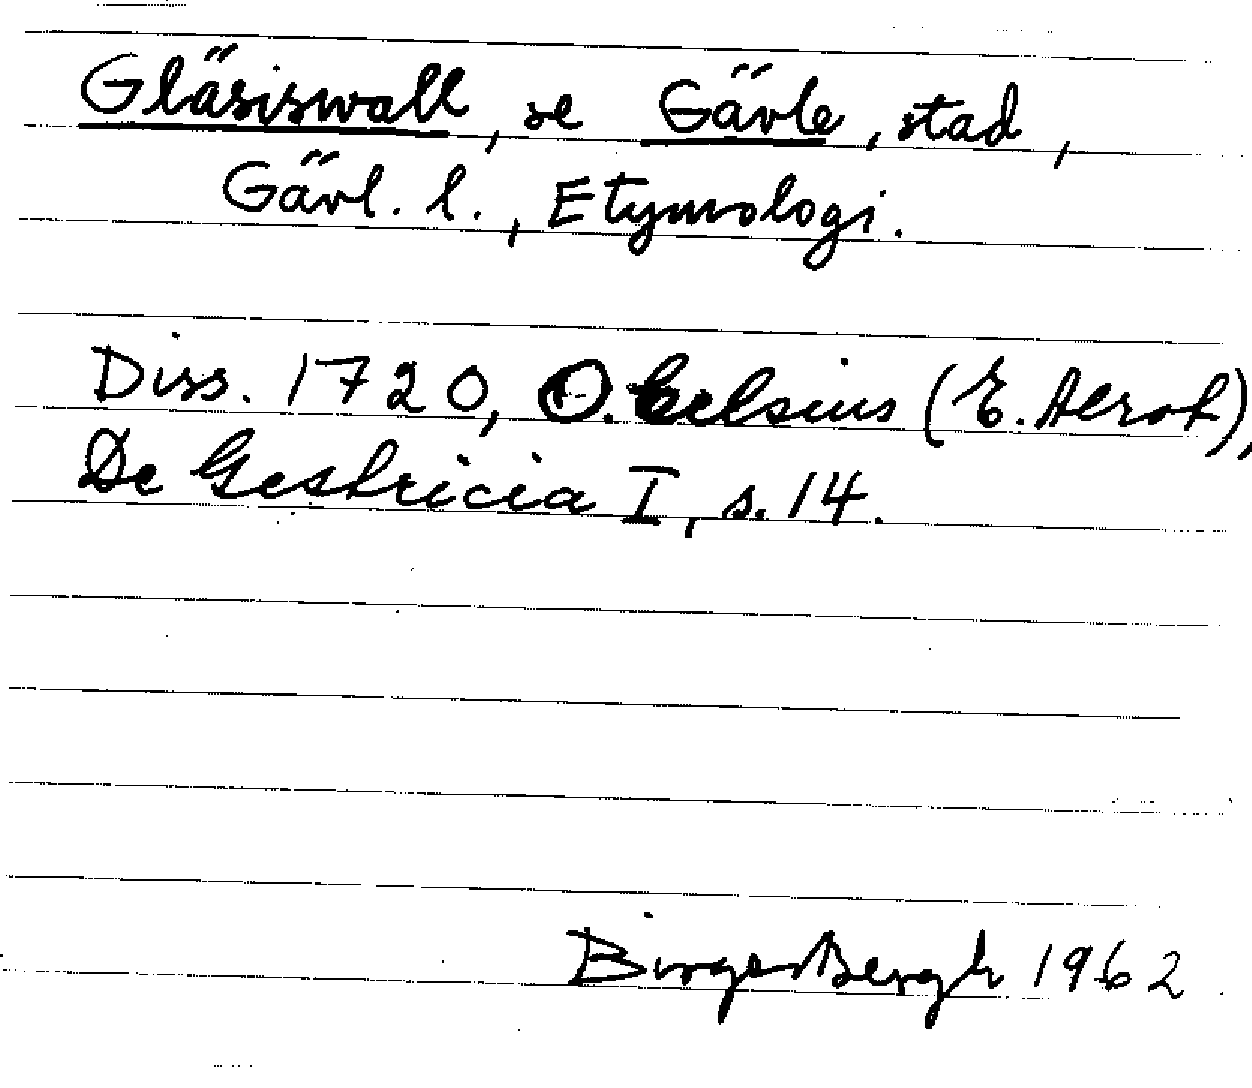 Gläsiswall, se Gävle, stad,
Gävl. l., Etymologi.
Diss. 1720, O. Celsius (E. Alroth),
De Gestricia I, s. 14.
Birger Bergh 1962